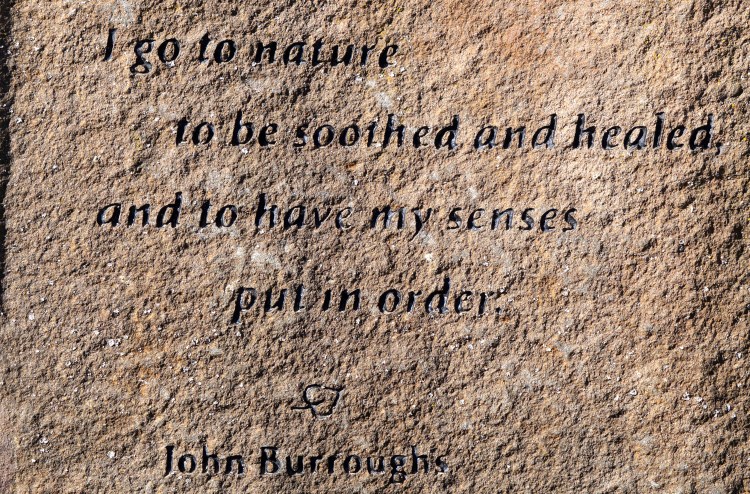 I go to nature
to be soothed and healed,
and to have my senses
put in order.
John Burroughs